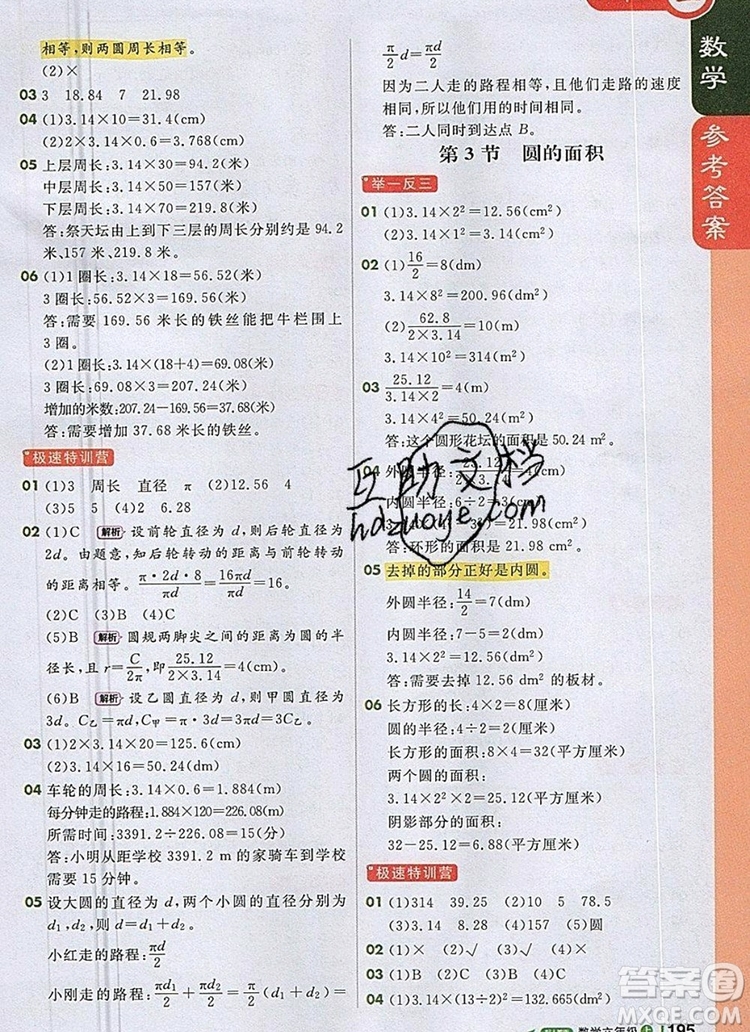 相等,则两圆周长相等。
(2)×
03 3 18.84 7 21.98
04 (1)3.14×10=31.4(cm)
(2)2×3.14×0.6=3.768(cm)
05 上层周长:3.14×30=94.2(米)
中层周长:3.14×50=157(米)
下层周长:3.14×70=219.8(米)
答:祭天坛由上到下三层的周长分别是 94.2
米、157米、219.8米。
06 (1)1圈长:3.14×18=56.52(米)
3圈长:56.52×3=169.56(米)
答:需要 169.56 米长的铁丝能把牛栏围上
3圈。
(2)1圈长:3.14×(18+4)=69.08(米)
3圈长:69.08×3=207.24(米)
增加的米数:207.24-169.56=37.68(米)
答:需要增加 37.68 米长的铁丝。
极速特训营
01 (1)3 周长 直径 π (2)12.56 4
(3)5 5 (4)2 6.28
02 (1)C 解析 设前轮直径为d,则后轮直径为
2d。由题意,知后轮转动的距离与前轮转动
的距离相等。π·2d·8/πd=16πd/πd=16
(2)C (3)B (4)C
(5)B 解析 圆规两脚尖之间的距离为圆的半
径长,且r=C/2π=25.12/(2×3.14)=4(cm)。
(6)B 解析 设乙圆直径为d,则甲圆直径为
3d。C乙=πd,C甲=π·3d=3πd=3C乙。
03 (1)2×3.14×20=125.6(cm)
(2)3.14×16=50.24(dm)
04 车轮的周长:3.14×0.6=1.884(m)
每分钟走的路程:1.884×120=226.08(m)
所需时间:3391.2÷226.08=15(分)
答:小明从距学校 3391.2 m 的家骑车到学校需
要 15 分钟。
05 设大圆的直径为d,两个小圆的直径分别为
d₁,d₂,则d₁+d₂=d。
小红走的路程:πd/2
小刚走的路程:πd₁/2+πd₂/2=π/2(d₁+d₂)=
π/2 d=πd/2
因为二人走的路程相等,且他们走路的速度
相同,所以他们用的时间相同。
答:二人同时到达点 B。
第3节 圆的面积
举一反三
01 (1)3.14×2²=12.56(cm²)
02 (1)16/2=8(dm)
3.14×8²=200.96(dm²)
(2)62.8/(2×3.14)=10(m)
3.14×10²=314(m²)
03 25.12/(3.14×2)=4(m)
3.14×4²=50.24(m²)
答:这个圆形花坛的面积是 50.24 m²。
04 外圆半径:
内圆半径:
答:环形的面积是 21.98 cm²。
05 去掉的部分正好是内圆。
外圆半径:14/2=7(dm)
内圆半径:7-5=2(dm)
3.14×2²=12.56(dm²)
答:需要去掉 12.56 dm² 的板材。
06 长方形的长:4×2=8(厘米)
圆的半径:4÷2=2(厘米)
长方形的面积:8×4=32(平方厘米)
两个圆的面积:
3.14×2²×2=25.12(平方厘米)
阴影部分的面积:
32-25.12=6.88(平方厘米)
极速特训营
01 (1)314 39.25 (2)10 5 78.5
(3)3.14 8.28 (4)157 (5)圆
02 (1)× (2)√ (3)√ (4)×
03 (1)C (2)B (3)B (4)D
04 (1)3.14×5²=78.5(cm²)
数学
参考答案
互助文档
hdzuoye.com
答案圈
数学六年级 上 195